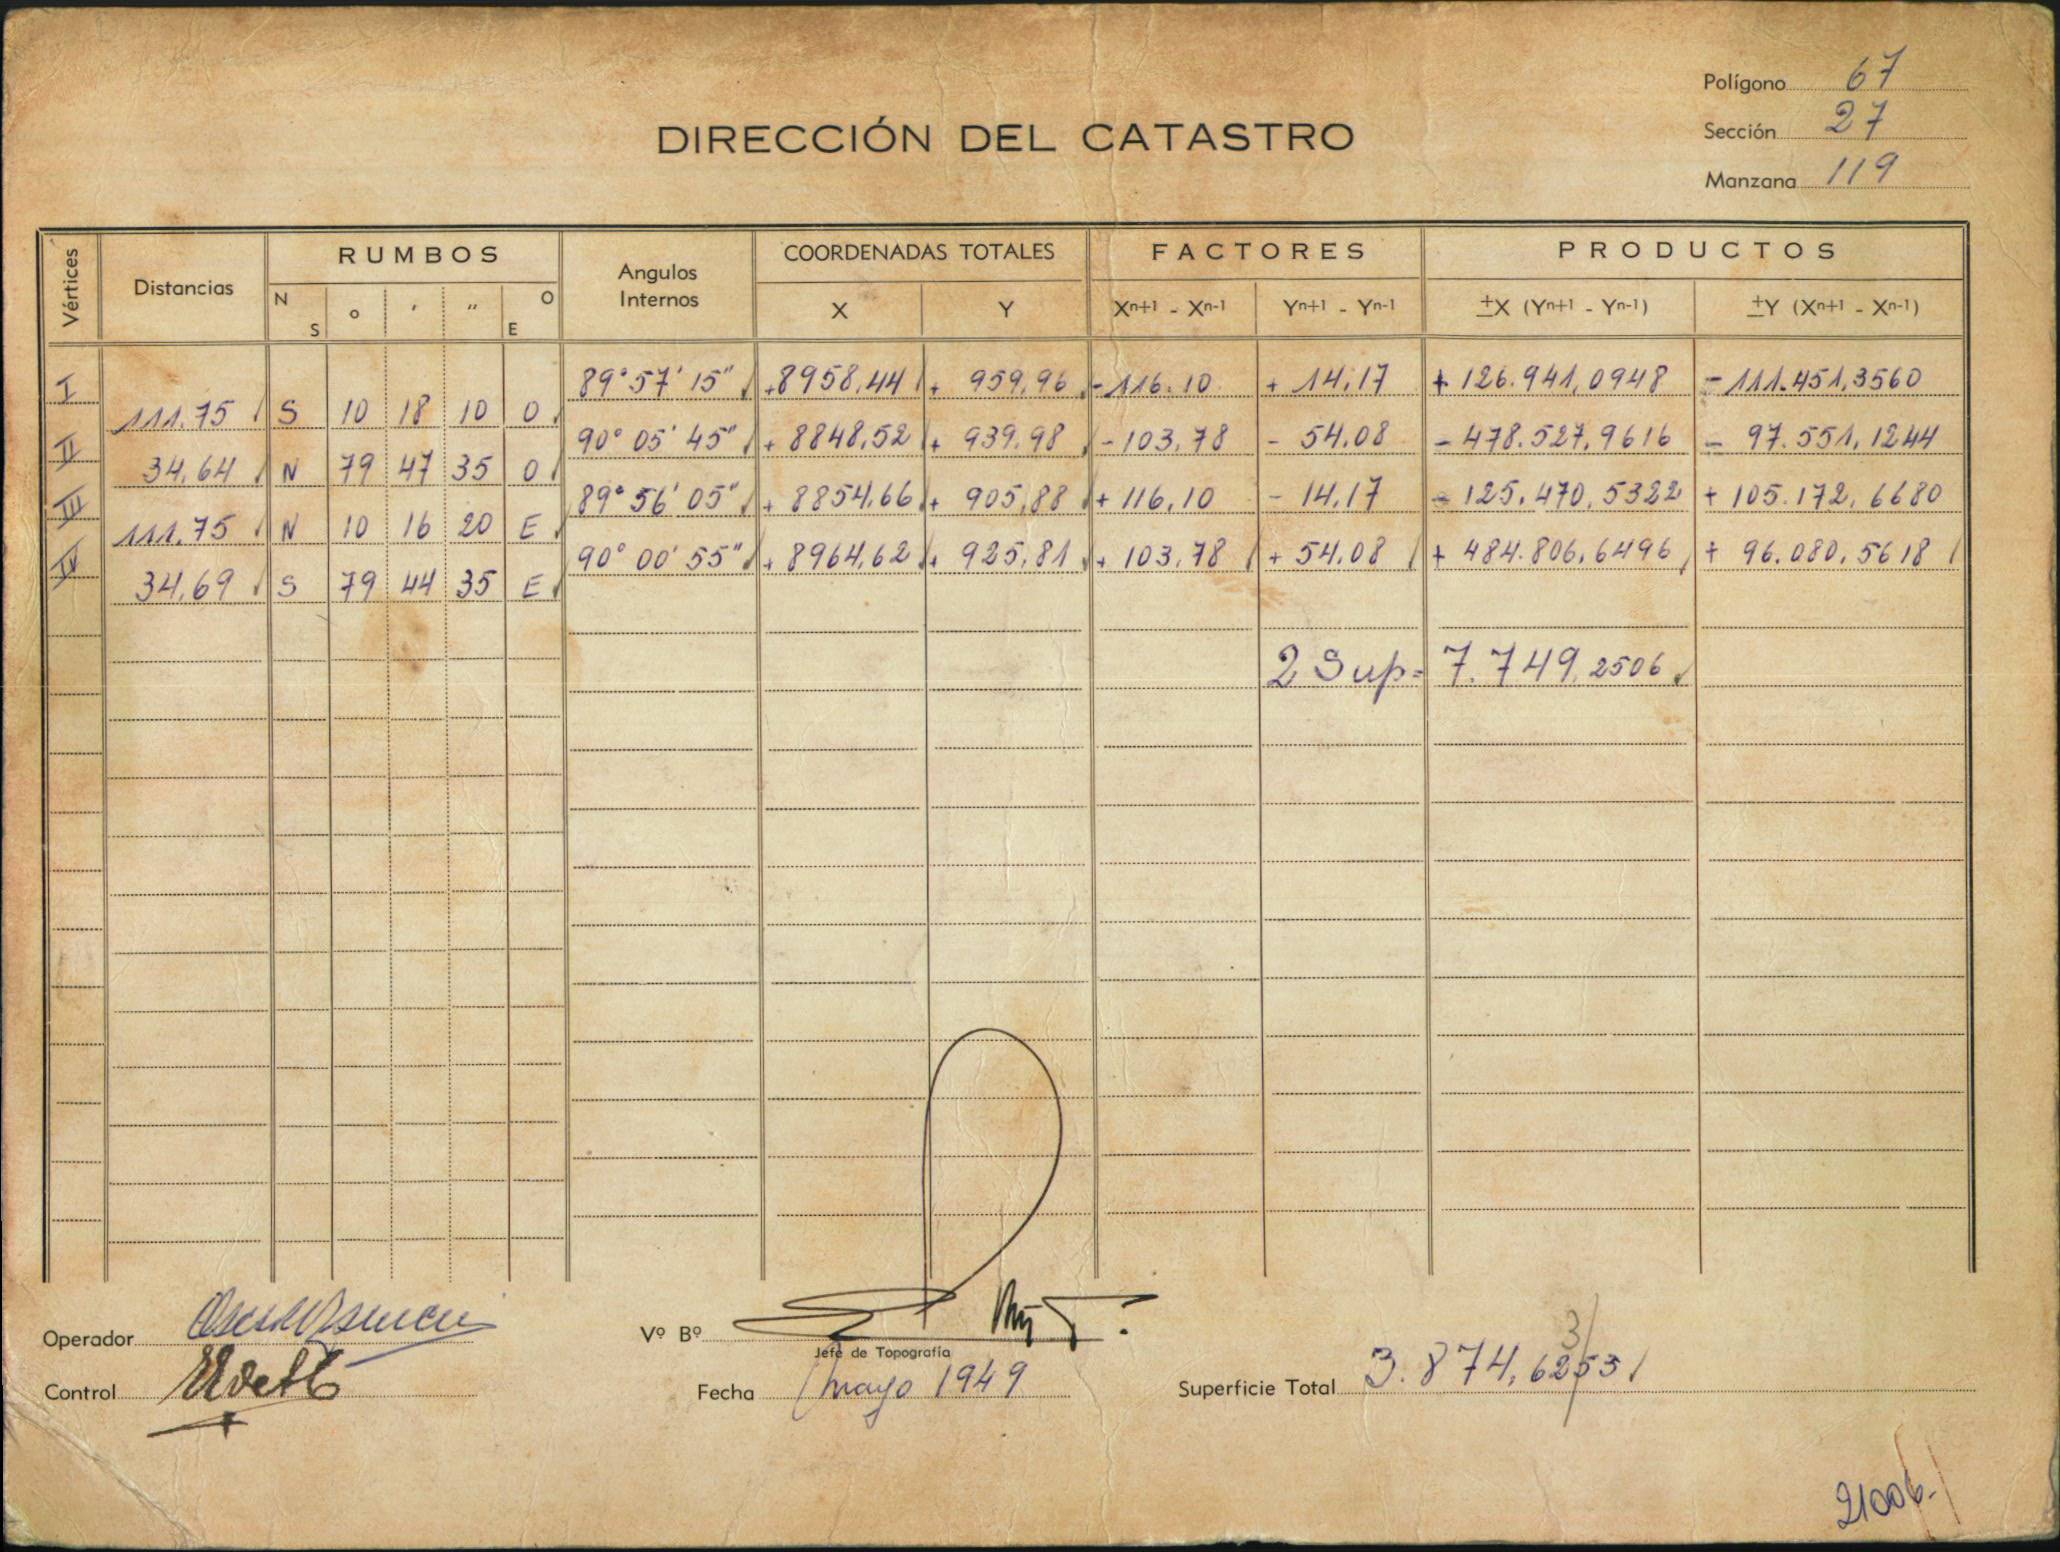 Polígono 67
Sección 27
Manzana 119
DIRECCIÓN DEL CATASTRO
Vértices Distancias RUMBOS Angulos Internos COORDENADAS TOTALES FACTORES PRODUCTOS
N S ° ' " O E X Y Xn+1 - Xn-1 Yn+1 - Yn-1 ±X (Yn+1 - Yn-1) ±Y (Xn+1 - Xn-1)
I 89° 57' 15" +8958,44 + 959,96 -116.10 + 14,17 + 126.941,0948 - 111.451,3560
111.75 S 10 18 10 O
II 90° 05' 45" + 8848,52 + 939,98 - 103,78 - 54,08 - 478.527,9616 - 97.551,1244
34,64 N 79 47 35 O
III 89° 56' 05" + 8854,66 + 905,88 + 116,10 - 14,17 - 125.470,5322 + 105.172,6680
111.75 N 10 16 20 E
IV 90° 00' 55" + 8964,62 + 925,81 + 103,78 + 54,08 + 484.806,6496 + 96.080,5618
34,69 S 79 44 35 E
2 Sup= 7.749,2506
Operador
Vº Bº
Jefe de Topografía
Control
Fecha mayo 1949
Superficie Total 3.874,6253
3
21006.